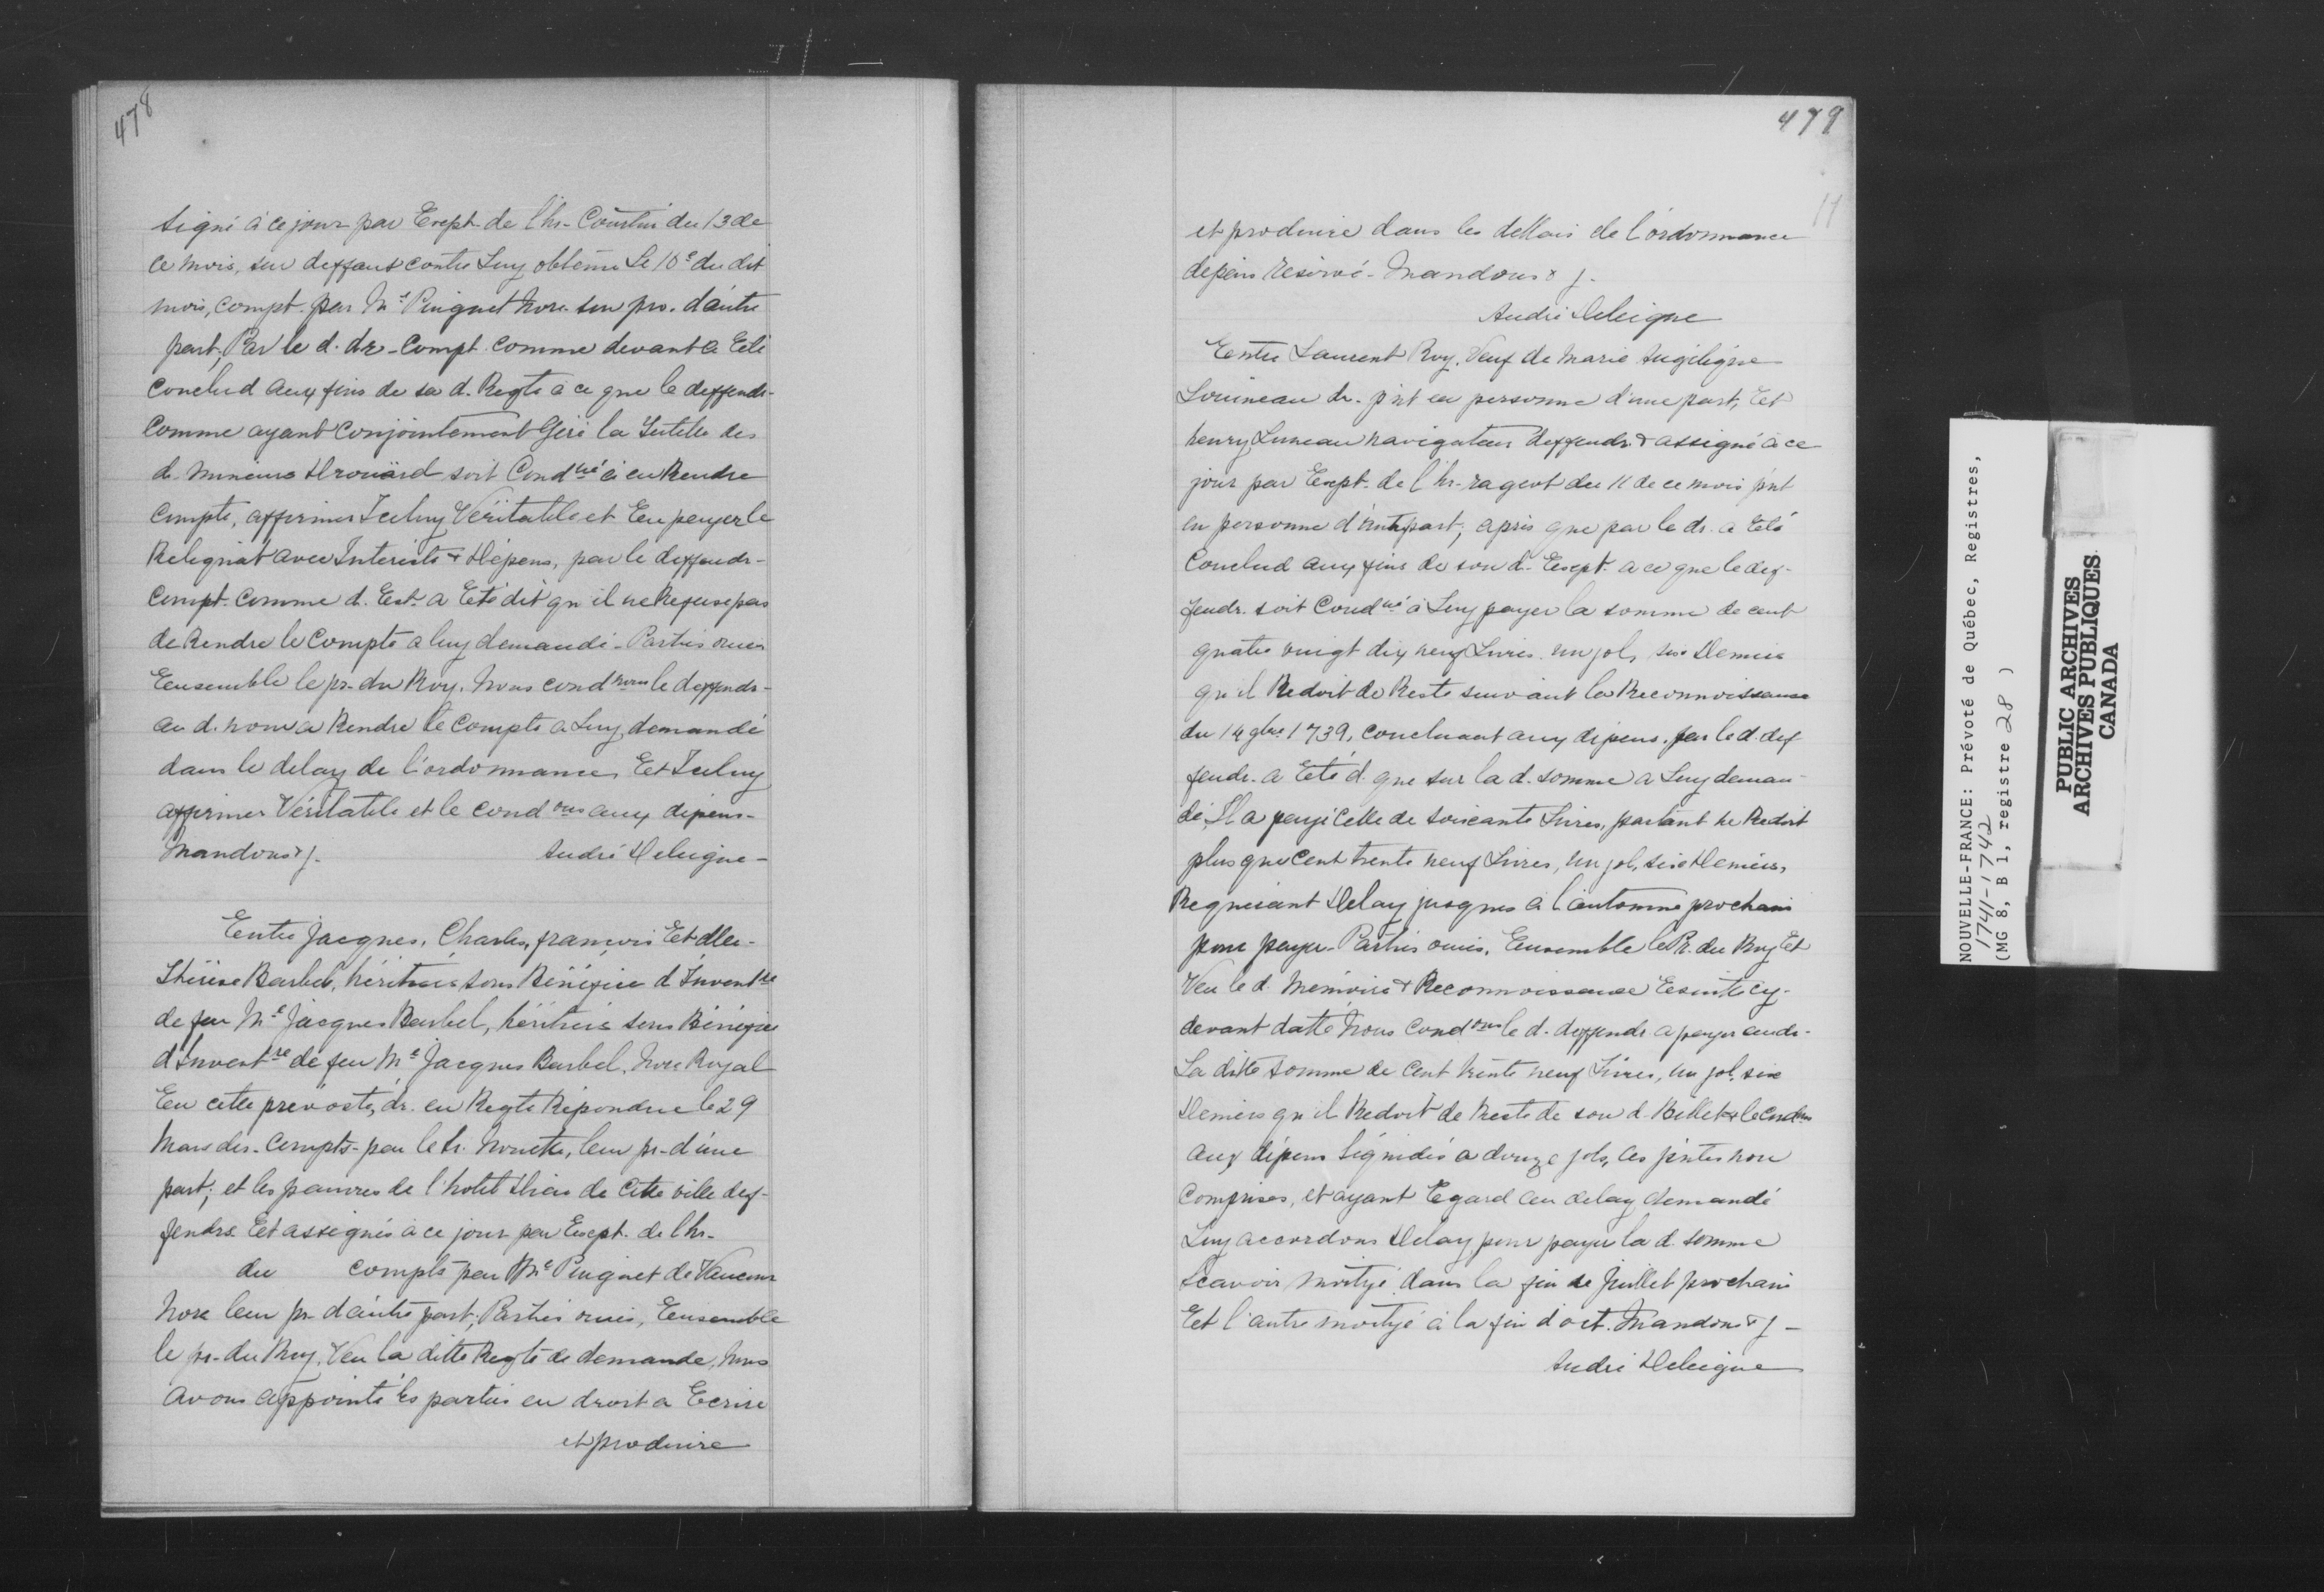 478
signé à ce jour par Exept. de l'hr. Courtin du 13 de
ce mois, sur deffaut contre Luy obtenu Le 10e du dit
mois, compt. par Me Pinguet Nore. son pro. d'autre
part, Par le d. dr. Compt. comme devant a Eté
Conclud aux fins de sa d. Reqte à ce que le deffendr.
Comme ayant Conjointement Géré la Tutelle des
d. mineurs Drouärd soit Condné à en Rendre
Compte, affirmer Iceluy Véritable et En payer le
Reliquat avec Interests & Dépens, par le deffendr.
Compt. Comme d. Est. a Eté dit qu'il ne Refuse pas
de Rendre le Compte a luy demandé. Parties ouies
Eensemble le pr. du Roy. Nous condnons le deffendr.
au d. nom a Rendre le Compte a Luy demandé
dans le delay de l'ordonnance, Eet Iceluy
affirmer Véritable et le condons aux dépens.
Mandons & j. André Deleigne
Eentre Jacques, Charles, françois Eet dlle.
Thérèse Barbel, héritiers sous Bénéfice d'Inventre
de feu Me Jacques Barbel, héritiers sous Bénéfice
d'Inventre de feu Me Jacques Barbel, Nore Royal
En cette prevosté, dr. en Reqte Répondue le 29
Mars der. Compts. par le Sr. Nouette, leur pr. d'une
part; et les pauvres de l'hotel Dieu de Cette ville def-
fendrs. Eet assignés à ce jour par Exept. de l'hr.
du compts par Me Pinguet de Vaucour
Nore leur pr. d'autre part; Parties ouies, Eensemble
le pr. du Roy, Veu la ditte Reqte de demande, Nous
avons appointé les parties en droit a Ecrire
et produire
479
11
et produire dans les dellais de l'ordonnance
depens reservé. Mandons & j.
André Deleigne
Eentre Laurent Roy, Veuf de Marie Angélique
Louineau dr. pnt en personne d'une part, Eet
henry Luneau navigateur deffendr. & assigné à ce
jour par Exept. de l'hr. rageot du 11 de ce mois pnt
en personne d'aut. part; après que par le dr. a Eté
Conclud aux fins de son d. Exept. a ce que le def-
fendr. soit Condné à Luy payer la somme de cent
quatre vingt dix neuf Livres un sol, six Deniers
qu'il Redoit de Reste suivant la Reconnoissance
du 14 gbre 1739, concluant aux dépens. par le d. def
fendr. a Eté d. que sur la d. somme a Luy deman-
dé, Il a payé Celle de soixante Livres, partant ne Redoit
plus que Cent trente neuf Livres, un sol, six Deniers,
Requérant Delay jusques à l'automne prochain
pour payer. Parties ouies, Eensemble le Pr. du Roy Et
Veu le d. Mémoire & Reconnoissance Ecrite cy-
devant datté Nous Condons le d. deffendr. a payer audr.
La ditte somme de Cent trente neuf Livres, un sol, six
Deniers qu'il Redoit de Reste de son d. Billet & le Condons
aux dépens liquidés a douze sols, les pntes non
Comprises, et ayant Egard au delay demandé
Luy accordons Delay pour payer la d. somme
Scavoir moityé dans la fin de Juillet prochain
Eet l'autre moityé à la fin d'oct. Mandons & j.
André Deleigne
NOUVELLE-FRANCE: Prévoté de Québec, Registres,
1741-1742
(MG 8, B 1, registre 28 )
PUBLIC ARCHIVES
ARCHIVES PUBLIQUES
CANADA